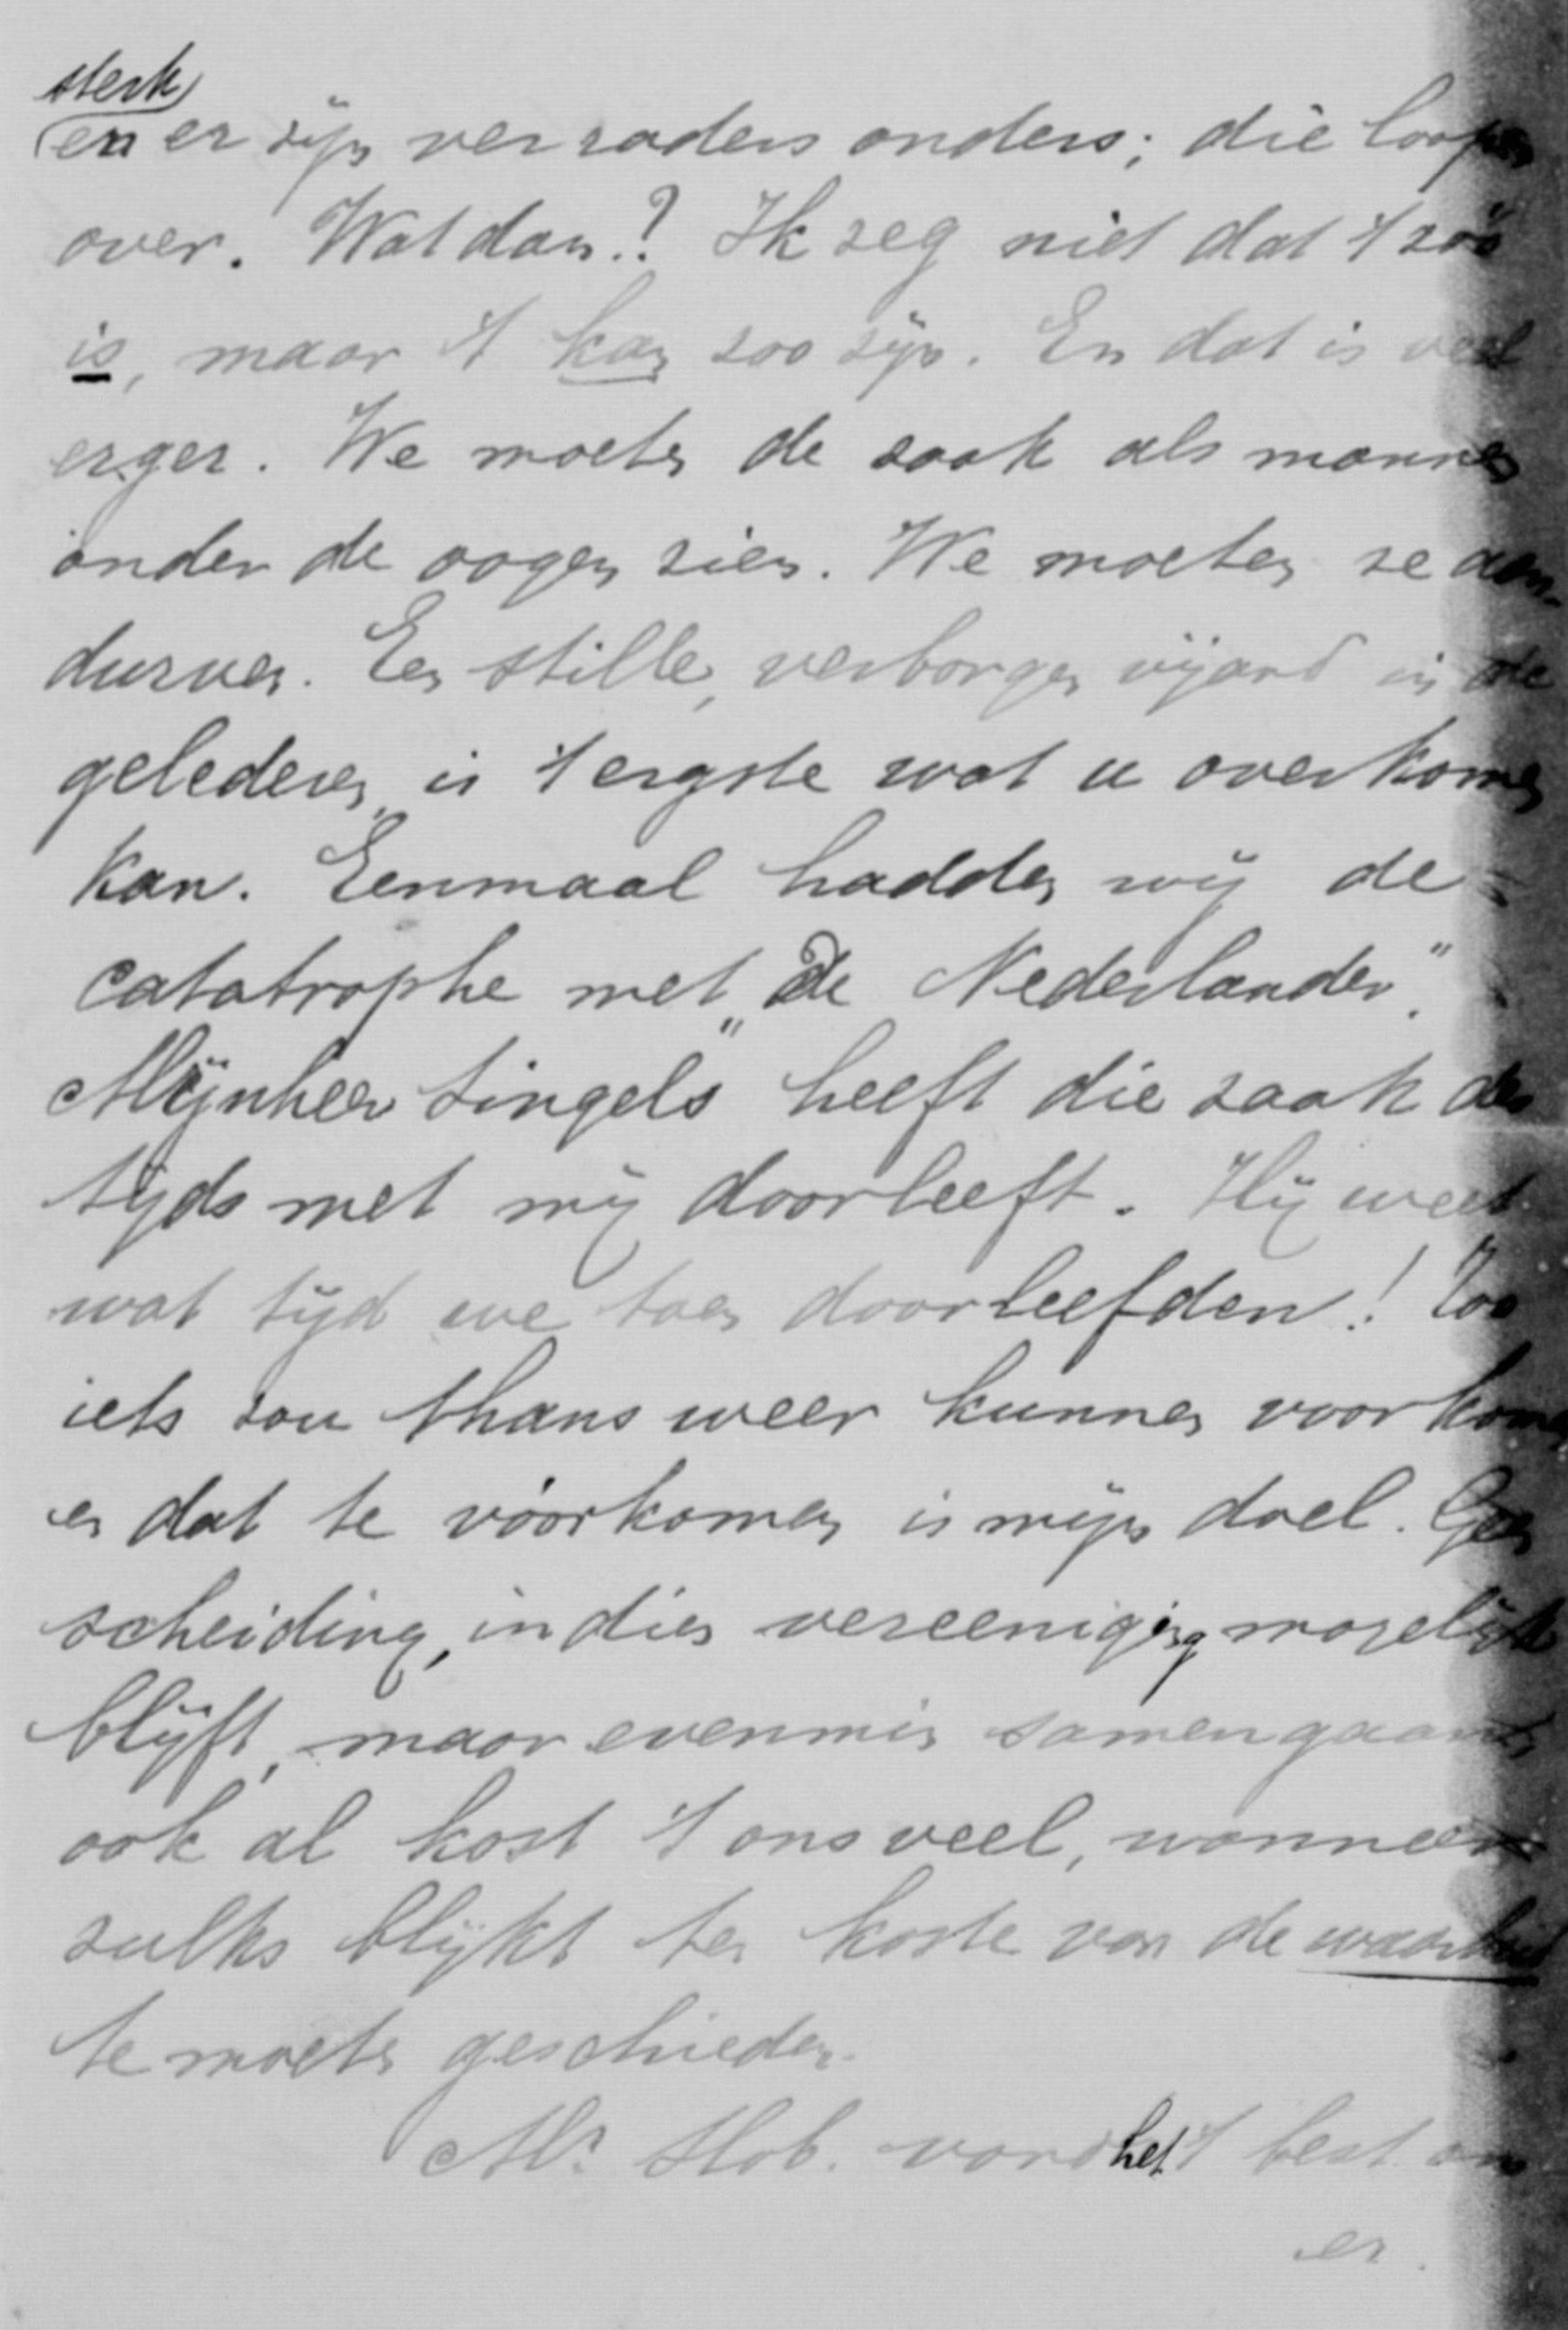 sterk
en er zijn verraders onders; die loopen
over. Wat dan!? Ik zeg niet dat 't zóó
is, maar 't kan zoo zijn. En dat is veel
erger. We moeten de zaak als mannen
onder de oogen zien. We moeten ze aan-
durven. Een stille, verborgen vijand in de
gelederen is 't ergste wat u overkomen
kan. Eenmaal hadden wij de
catatrophe met „De Nederlander".
Mijnheer Singels heeft die zaak des
tijds met mij doorleeft. Hij weet
wat tijd we toen doorleefden! Zoo
iets zou thans weer kunnen voorkomen
en dat te vóórkomen is mijn doel. Geen
scheiding, indien vereeniging mogelijk
blijft, maar evenmin samengaan,
ook al kost 't ons veel, wanneer
zulks blijkt ten koste van de waarheid
te moeten geschieden.
Mr. Slob. vond het 't best om
er.